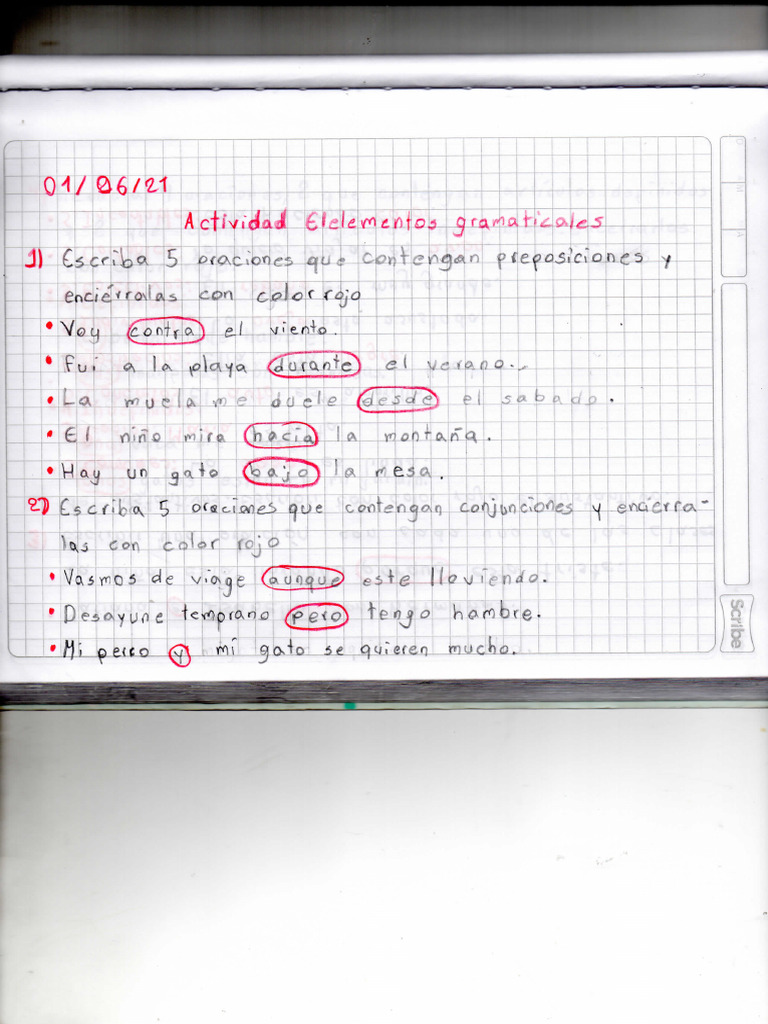 01/06/21
Actividad Elelementos gramaticales
1) Escriba 5 oraciones que contengan preposiciones y
enciérralas con color rojo
• Voy contra el viento.
• Fui a la playa durante el verano.
• La muela me duele desde el sabado.
• El niño mira hacia la montaña.
• Hay un gato bajo la mesa.
2) Escriba 5 oraciones que contengan conjunciones y encierra-
las con color rojo
• Vasmos de viage aunque este lloviendo.
• Desayune temprano pero tengo hambre.
• Mi perro y mi gato se quieren mucho.
Scribe